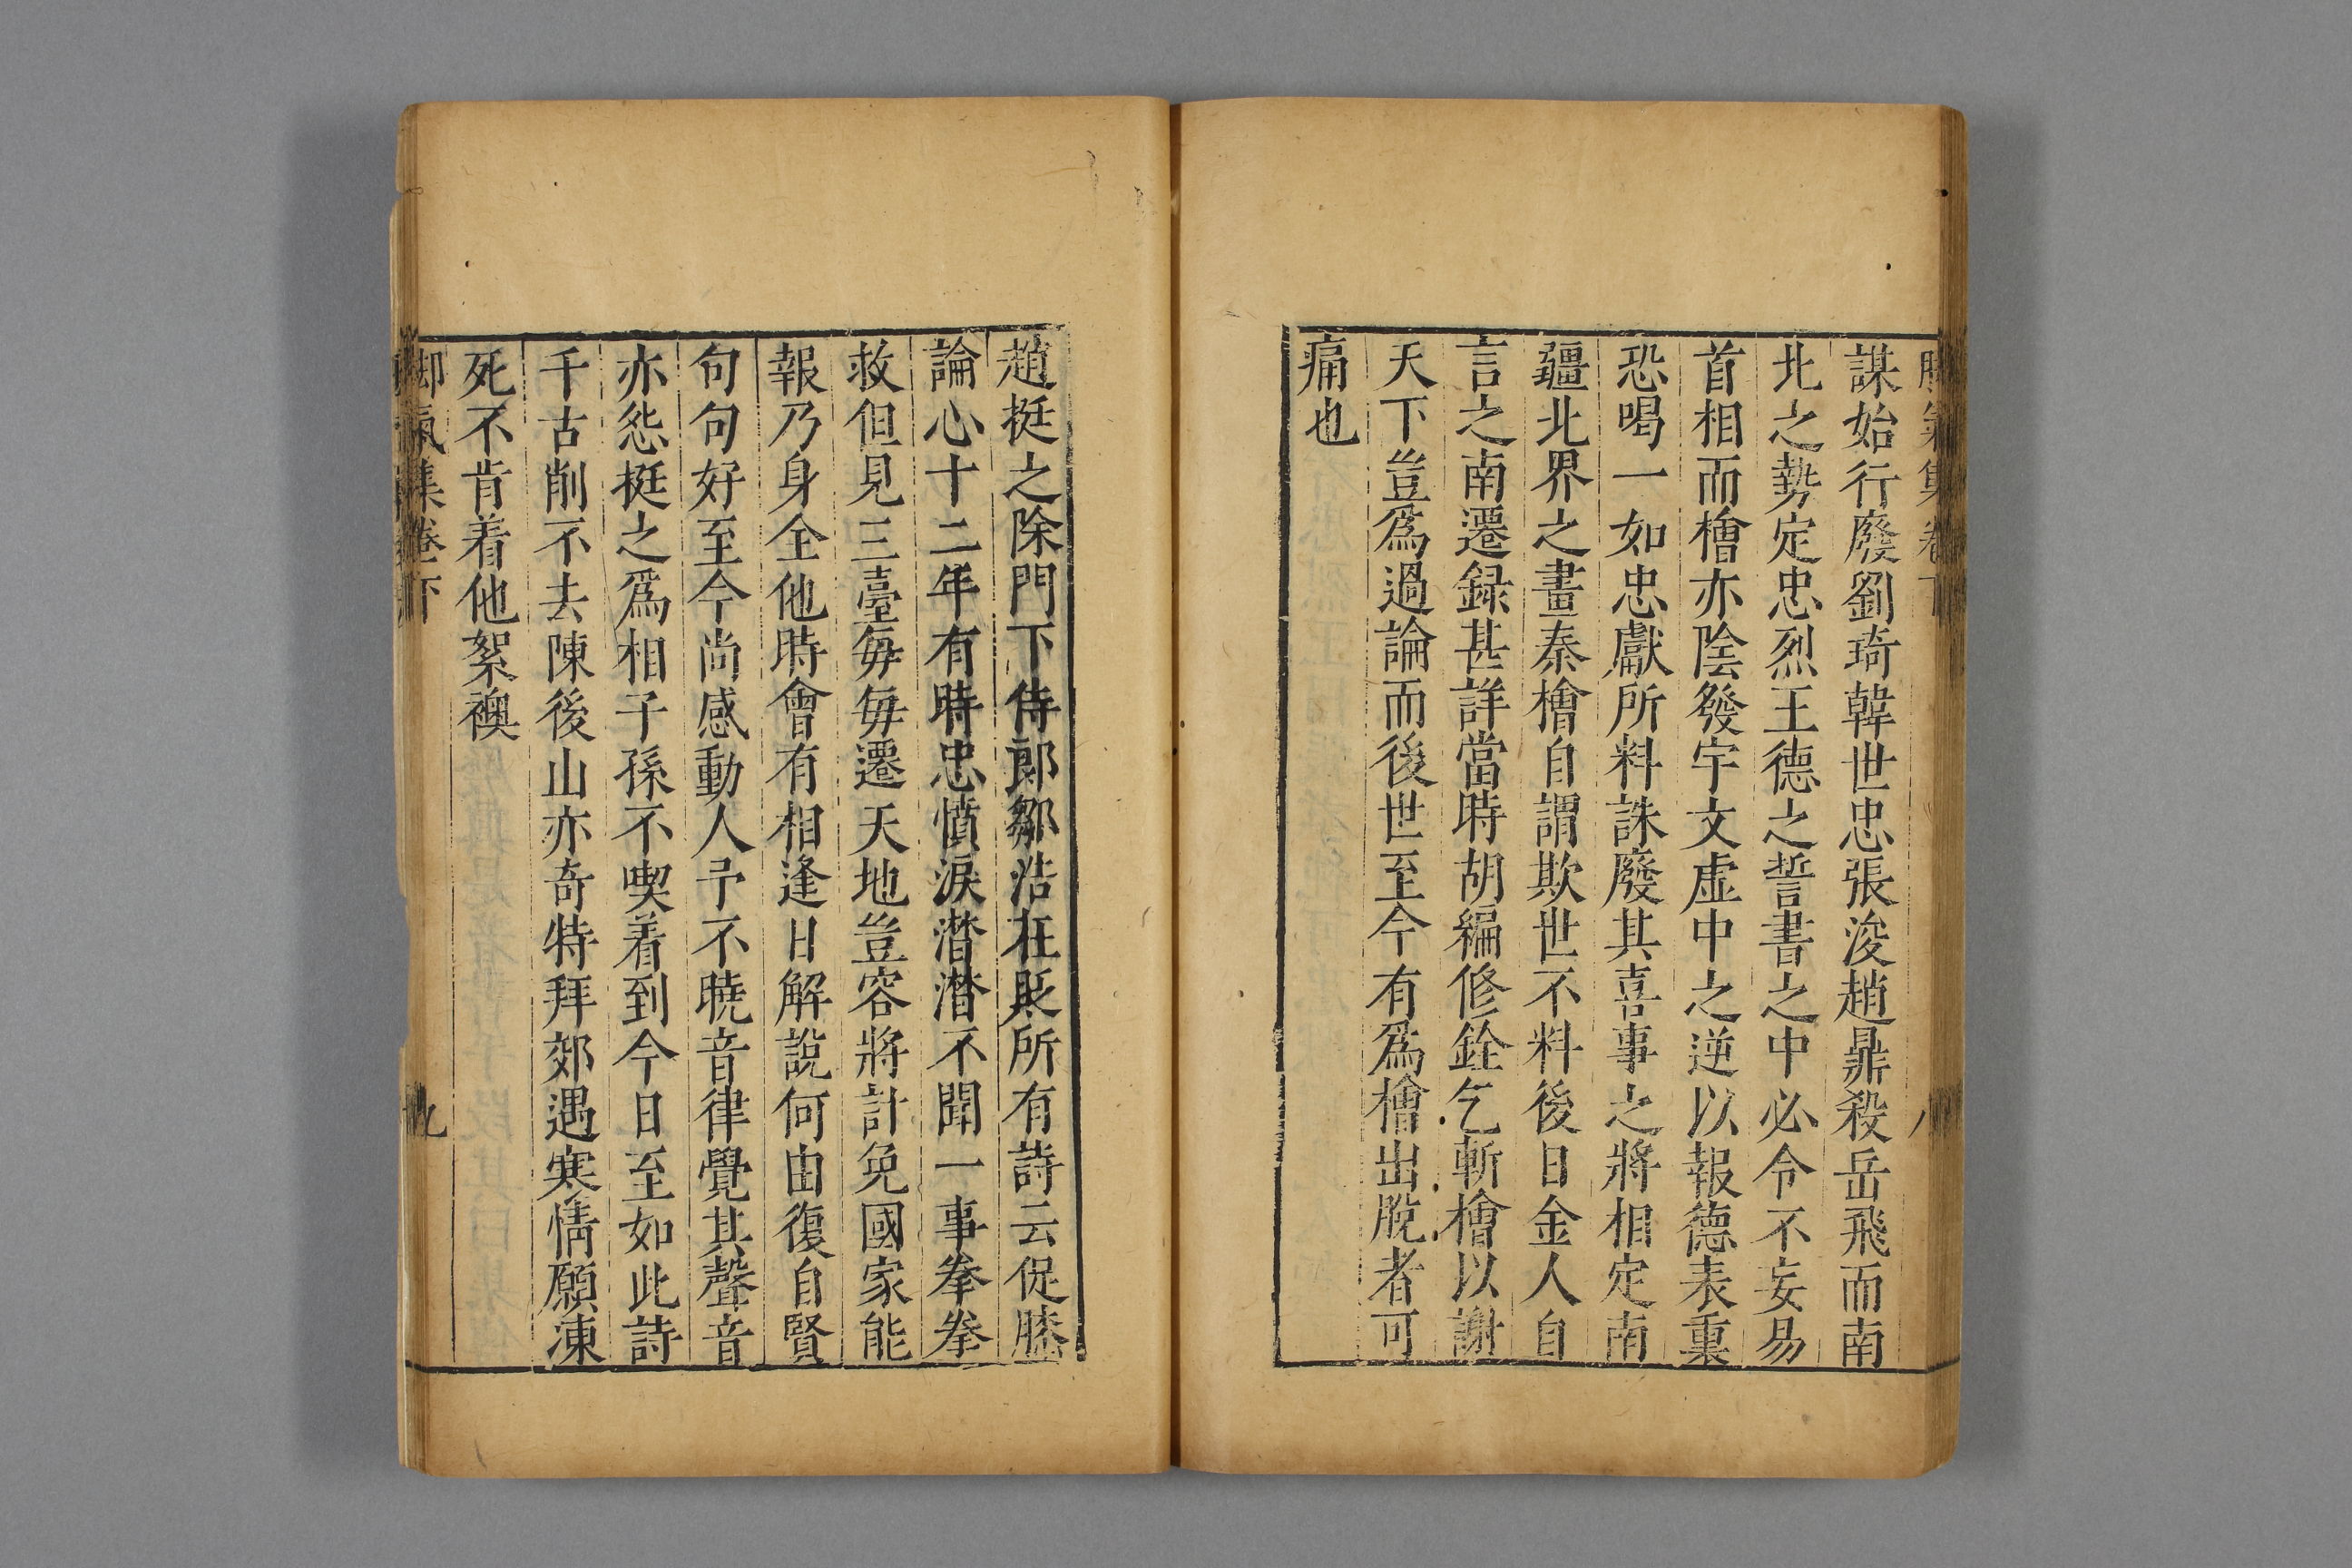 脚氣集卷下 八
謀始行廢劉琦韓世忠張浚趙鼎殺岳飛而南
北之勢定忠烈王德之誓書之中必令不妄易
首相而檜亦陰發宇文虛中之逆以報德表裏
恐喝一如忠獻所料誅廢其喜事之將相定南
疆北界之畫秦檜自謂欺世不料後日金人自
言之南遷録甚詳當時胡編修銓乞斬檜以謝
天下豈爲過論而後世至今有爲檜出脫者可
痛也
趙挺之除門下侍郎鄒浩在貶所有詩云促膝
論心十二年有時忠憤淚潸潸不聞一事拳拳
救但見三臺每每遷天地豈容將計免國家能
報乃身全他時會有相逢日解說何由復自賢
句句好至今尚感動人予不曉音律覺其聲音
亦怨挺之爲相子孫不喫着到今日至如此詩
千古削不去陳後山亦奇特拜郊遇寒情願凍
死不肯着他絮襖
脚氣集卷下 九